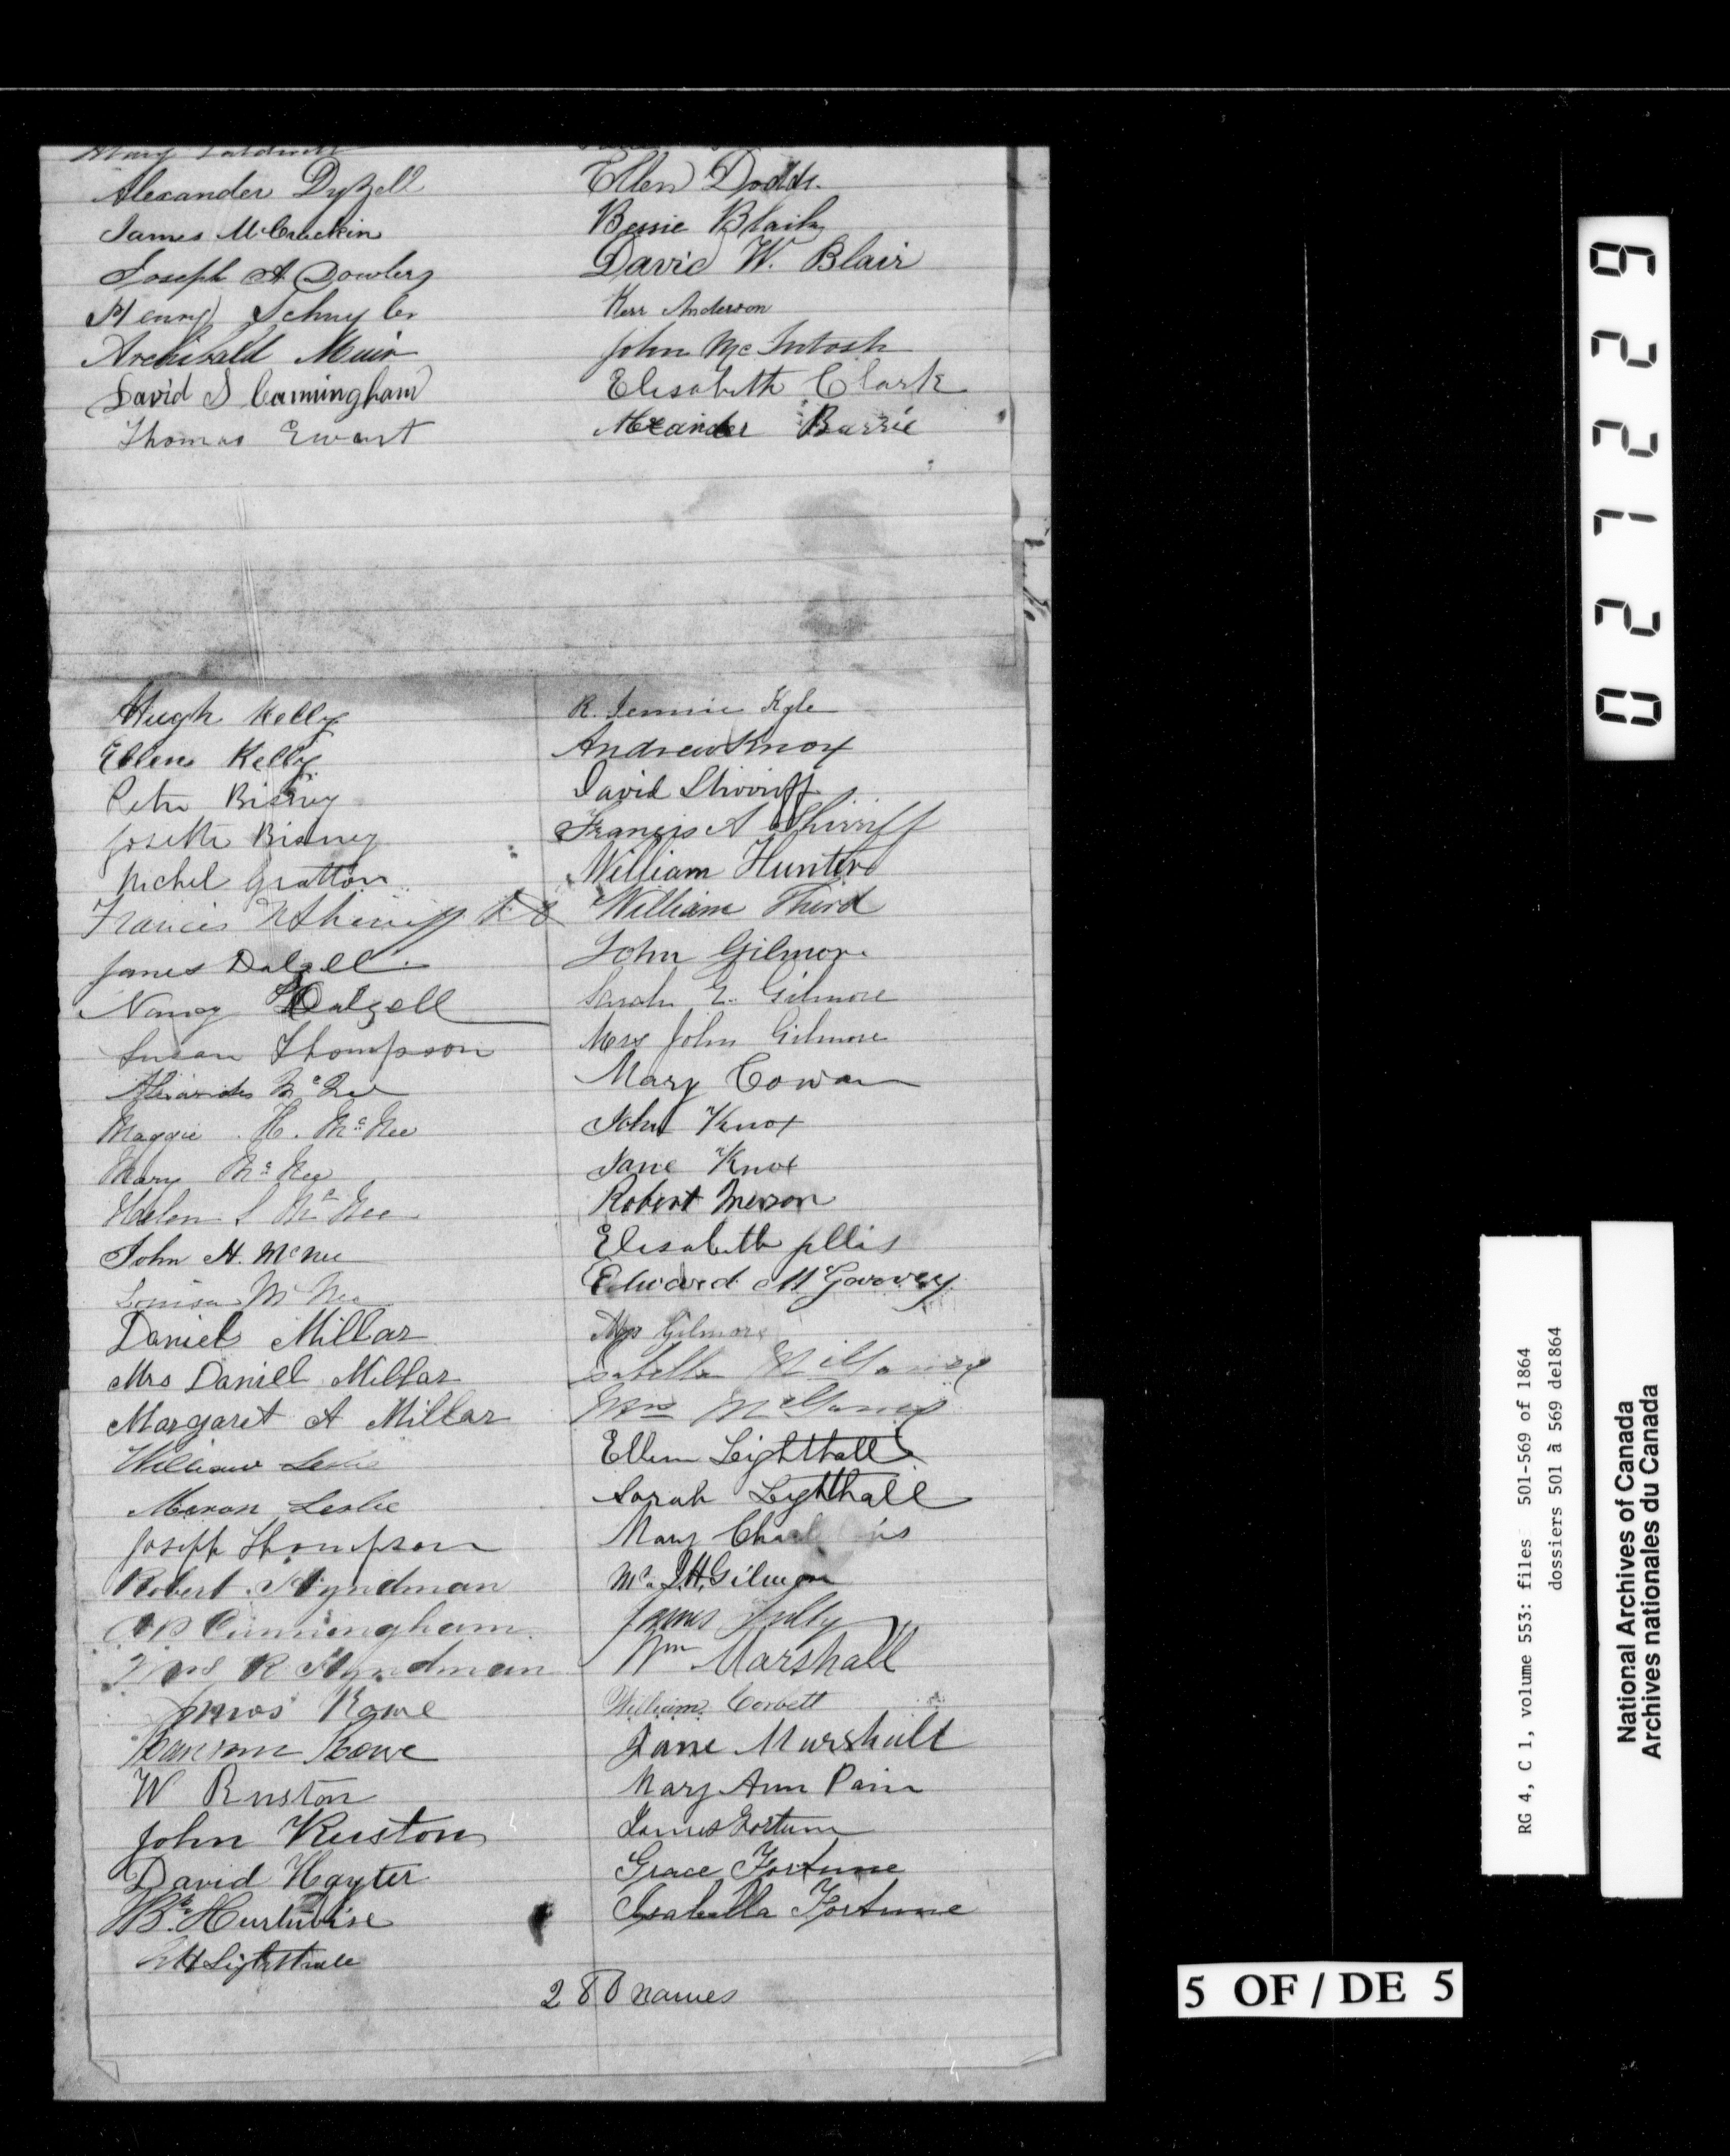 Mary
Alexander Dyzell
James McCrackin
Joseph A Dowler
Henry Schuyler
Archibald Muir
David S Cunningham
Thomas Ewart
Ellen Dodds
Bessie
David W. Blair
Kerr Anderson
John McIntosh
Elisabeth Clark
Alexander Barrie
Hugh Kelly
Ellen Kelly
Peter Bisney
Josette Bisney
Michel Gratton
Francis
James Dalzell
Nancy Dalzell
Susan Thompson
Alexander McNee
Maggie H. McNee
Mary McNee
Helen S McNee
John H. McNee
Louisa McNee
Daniel Millar
Mrs Daniel Millar
Margaret A Millar
William Leslie
Leslie
Joseph Thompson
Robert Hyndman
Cunningham
Mrs R Hyndman
James Rowe
Rowe
W Ruston
John Ruston
David Hayter
Hurtubise
Lighthall
R. Jennie Kyle
Andrew Knox
David Shirriff
Francis A Shirriff
William Hunter
William Third
John Gilmore
Sarah E. Gilmore
Mrs John Gilmore
Mary Cowan
John Knox
Jane Knox
Robert
Elisabeth
Edward McGarvey
Mrs Gilmore
Isabella McGarvey
Mrs McGarvey
Ellen Lighthall
Sarah Lighthall
Mary
J.H. Gilmore
James
Wm Marshall
William Corbett
Jane Marshall
Mary Ann Pain
James Fortune
Grace Fortune
Isabella Fortune
280 names
027229
RG 4, C 1, volume 553: files 501-569 of 1864
dossiers 501 à 569 de1864
National Archives of Canada
Archives nationales du Canada
5 OF / DE 5